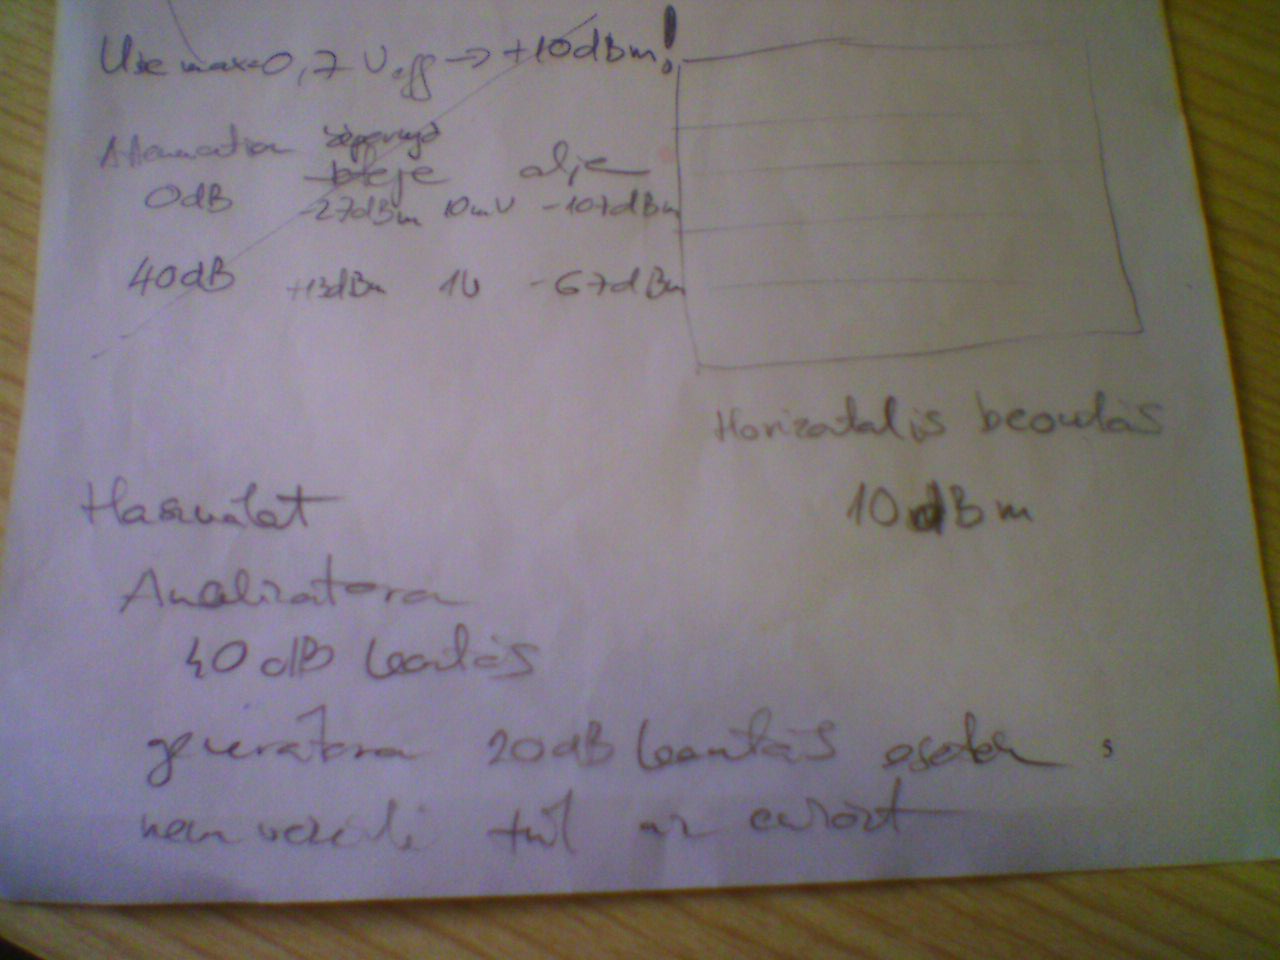 Ube max=0,7 Ueff → +10dBm!
Attenuation képernyő
teteje alja
0dB -27dBm 10mV -107dBm
40dB +13dBm 1V -67dBm
Horizontalis beosztás
10dBm
Használat
Analizátoron
40 dB leosztás
generátoron 20dB leosztás esetén
nem vezérli túl az eszközt